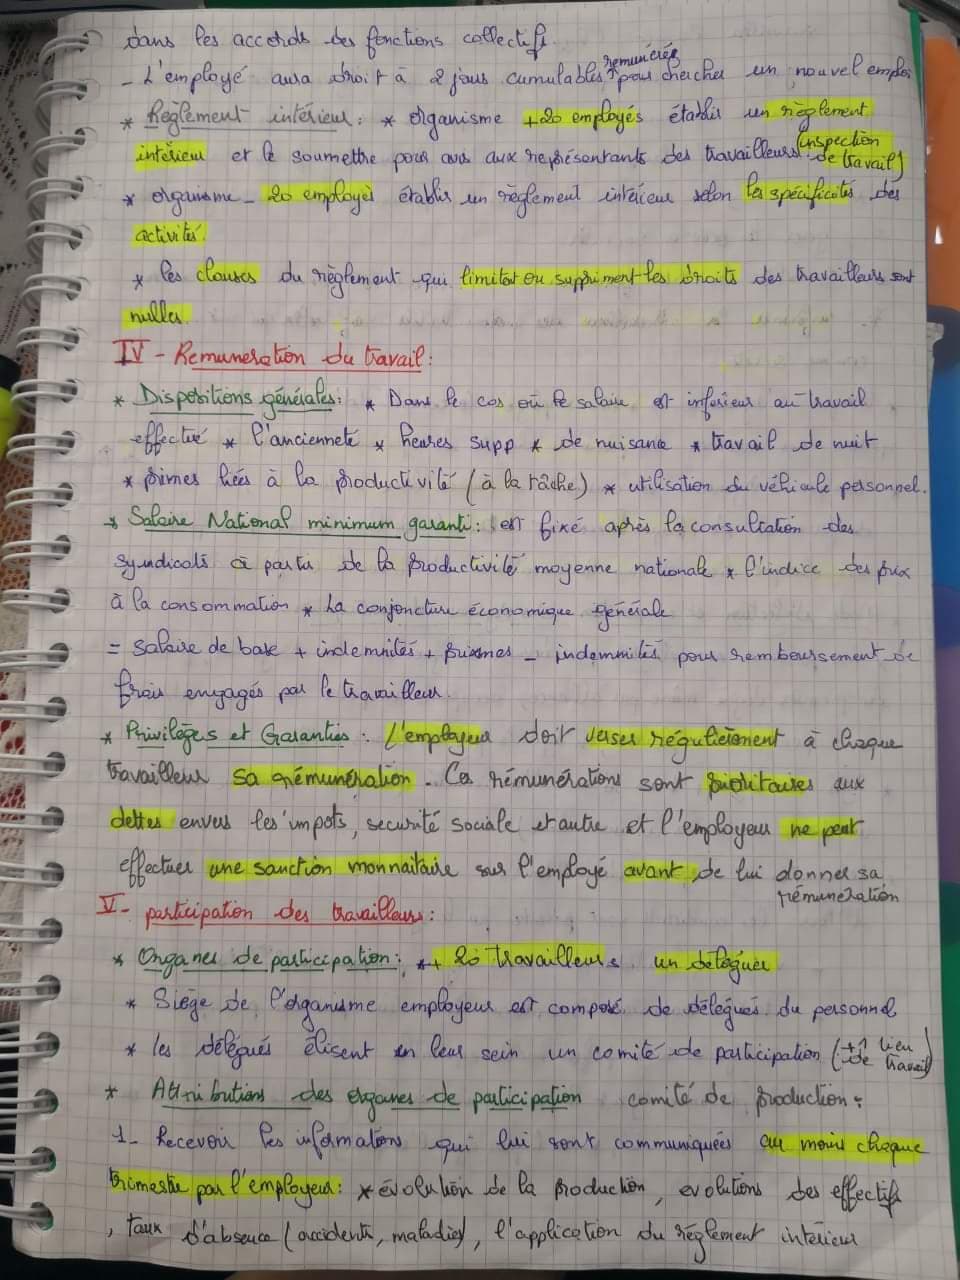 dans les accords des fonctions collectifs
- L'employé aura droit à 2 jours cumulables remunérés pour chercher un nouvel emploi
* Règlement intérieur : * organisme +20 employés établir un règlement
intérieur et le soumettre pour avis aux représentants des travailleurs (inspection de travail)
* organisme - 20 employés établir un règlement intérieur selon les spécificités des
activités.
* les clauses du règlement qui limitat ou suppriment les droits des travailleurs sont
nulles.
IV - Remuneration du travail :
* Dispositions générales : * Dans le cas où le salaire est inférieur au travail
effectué * l'ancienneté * heures supp * de nuisance * travail de nuit
* primes liées à la productivité (à la tâche) * utilisation du véhicule personnel.
* Salaire National minimum garanti : est fixé après la consultation des
syndicats à partir de la productivité moyenne nationale * l'indice des prix
à la consommation * La conjoncture économique générale
= salaire de base + indemnités + primes - indemnités pour remboursement de
frais engagés par le travailleur.
* Privilèges et Garanties : L'employeur doit verser régulièrement à chaque
travailleur sa rémunération. Ces rémunérations sont prioritaires aux
dettes envers les impots, securité sociale et autre et l'employeur ne peut
effectuer une sanction monnaitaire sur l'employé avant de lui donner sa
rémunération
V - participation des travailleurs :
* Organes de participation : * + 20 travailleurs un délégués
* Siège de l'organisme employeur est composé de délégués du personnel
* les délégués élisent en leur sein un comité de participation (+1 lieu de travail)
* Attributions des organes de participation comité de production :
1- Recevoir les informations qui lui sont communiquées au moins chaque
trimestre par l'employeur : * évolution de la production, evolutions des effectifs
, taux d'absence (accidents, maladies), l'application du règlement intérieur